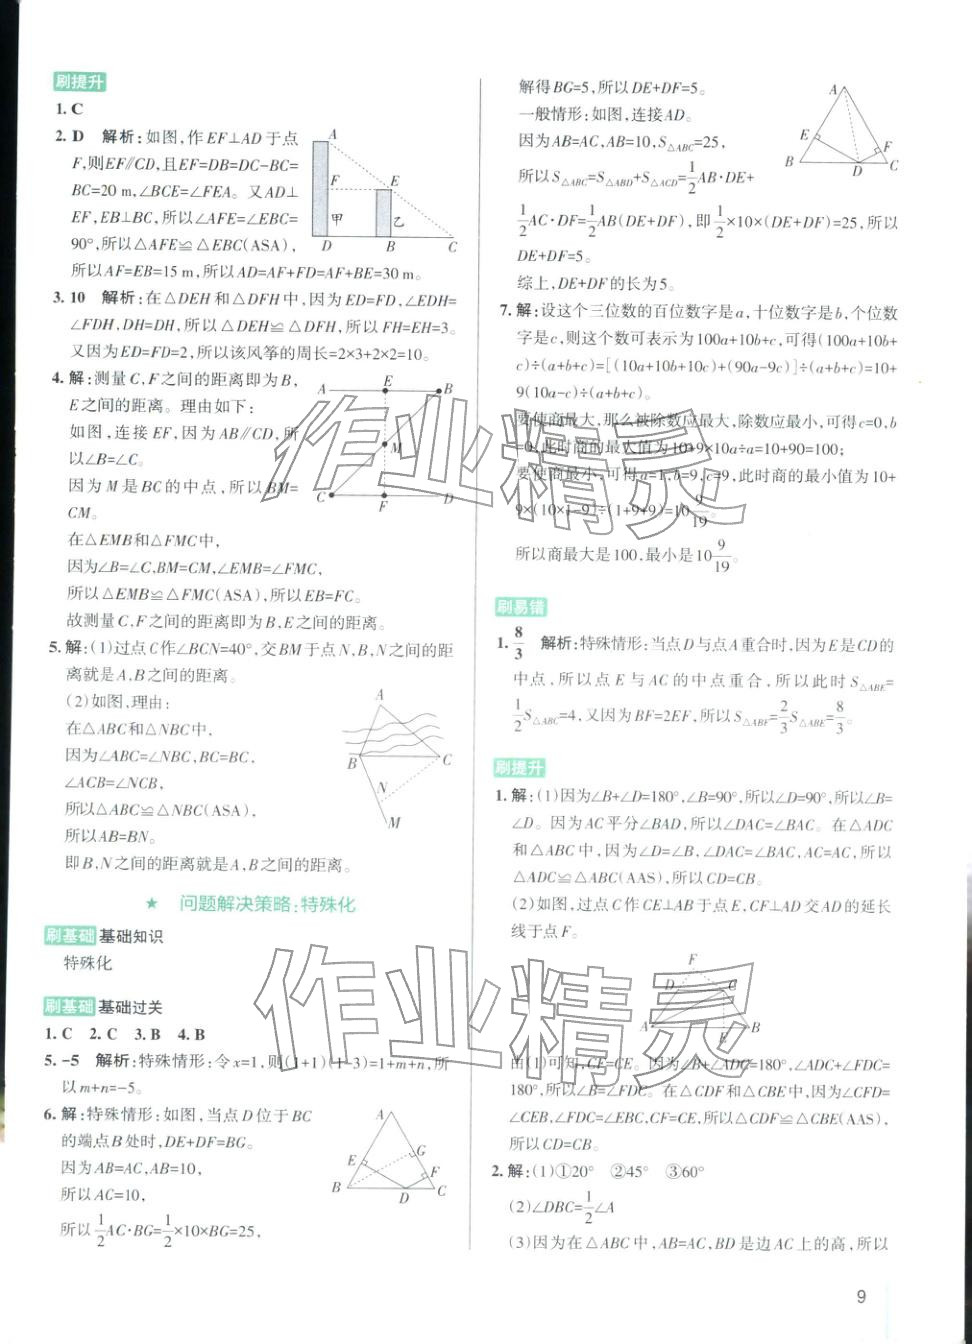 刷提升
1. C
2. D 解析:如图,作EF⊥AD于点
F,则EF∥CD,且EF=DB=DC-BC=
BC=20 m,∠BCE=∠FEA。又AD⊥
EF,EB⊥BC,所以∠AFE=∠EBC=
90°,所以△AFE≌△EBC(ASA),
所以AF=EB=15 m,所以AD=AF+FD=AF+BE=30 m。
A
F
E
甲
乙
D
B
C
3. 10 解析:在△DEH和△DFH中,因为ED=FD,∠EDH=
∠FDH,DH=DH,所以△DEH≌△DFH,所以FH=EH=3。
又因为ED=FD=2,所以该风筝的周长=2×3+2×2=10。
4. 解:测量C,F之间的距离即为B,
E之间的距离。理由如下:
如图,连接EF,因为AB∥CD,所
以∠B=∠C。
因为M是BC的中点,所以BM=
CM。
在△EMB和△FMC中,
因为∠B=∠C,BM=CM,∠EMB=∠FMC,
所以△EMB≌△FMC(ASA),所以EB=FC。
故测量C,F之间的距离即为B,E之间的距离。
A
E
B
M
C
F
D
5. 解:(1)过点C作∠BCN=40°,交BM于点N,B,N之间的距
离就是A,B之间的距离。
(2)如图,理由:
在△ABC和△NBC中,
因为∠ABC=∠NBC,BC=BC,
∠ACB=∠NCB,
所以△ABC≌△NBC(ASA),
所以AB=BN。
即B,N之间的距离就是A,B之间的距离。
A
B
C
N
M
★ 问题解决策略:特殊化
刷基础 基础知识
特殊化
刷基础 基础过关
1. C 2. C 3. B 4. B
5. -5 解析:特殊情形:令x=1,则(1+1)(1-3)=1+m+n,所
以m+n=-5。
6. 解:特殊情形:如图,当点D位于BC
的端点B处时,DE+DF=BG。
因为AB=AC,AB=10,
所以AC=10,
所以1/2AC·BG=1/2×10×BG=25,
A
E
G
F
B
D
C
解得BG=5,所以DE+DF=5。
一般情形:如图,连接AD。
因为AB=AC,AB=10,S△ABC=25,
所以S△ABC=S△ABD+S△ACD=1/2AB·DE+
1/2AC·DF=1/2AB(DE+DF),即1/2×10×(DE+DF)=25,所以
DE+DF=5。
综上,DE+DF的长为5。
A
E
F
B
D
C
7. 解:设这个三位数的百位数字是a,十位数字是b,个位数
字是c,则这个数可表示为100a+10b+c,可得(100a+10b+
c)÷(a+b+c)=[(10a+10b+10c)+(90a-9c)]÷(a+b+c)=10+
9(10a-c)÷(a+b+c)。
要使商最大,那么被除数应最大,除数应最小,可得c=0,b
=0,此时商的最大值为10+9×10a÷a=10+90=100;
要使商最小,可得a=1,b=9,c=9,此时商的最小值为10+
9×(10×1-9)÷(1+9+9)=10 9/19。
所以商最大是100,最小是10 9/19。
刷易错
1. 8/3 解析:特殊情形:当点D与点A重合时,因为E是CD的
中点,所以点E与AC的中点重合,所以此时S△ABE=
1/2S△ABC=4,又因为BF=2EF,所以S△ABF=2/3S△ABE=8/3。
刷提升
1. 解:(1)因为∠B+∠D=180°,∠B=90°,所以∠D=90°,所以∠B=
∠D。因为AC平分∠BAD,所以∠DAC=∠BAC。在△ADC
和△ABC中,因为∠D=∠B,∠DAC=∠BAC,AC=AC,所以
△ADC≌△ABC(AAS),所以CD=CB。
(2)如图,过点C作CE⊥AB于点E,CF⊥AD交AD的延长
线于点F。
F
D
C
A
E
B
由(1)可知,CF=CE。因为∠B+∠ADC=180°,∠ADC+∠FDC=
180°,所以∠B=∠FDC。在△CDF和△CBE中,因为∠CFD=
∠CEB,∠FDC=∠EBC,CF=CE,所以△CDF≌△CBE(AAS),
所以CD=CB。
2. 解:(1)①20° ②45° ③60°
(2)∠DBC=1/2∠A
(3)因为在△ABC中,AB=AC,BD是边AC上的高,所以
作业精灵
作业精灵
9